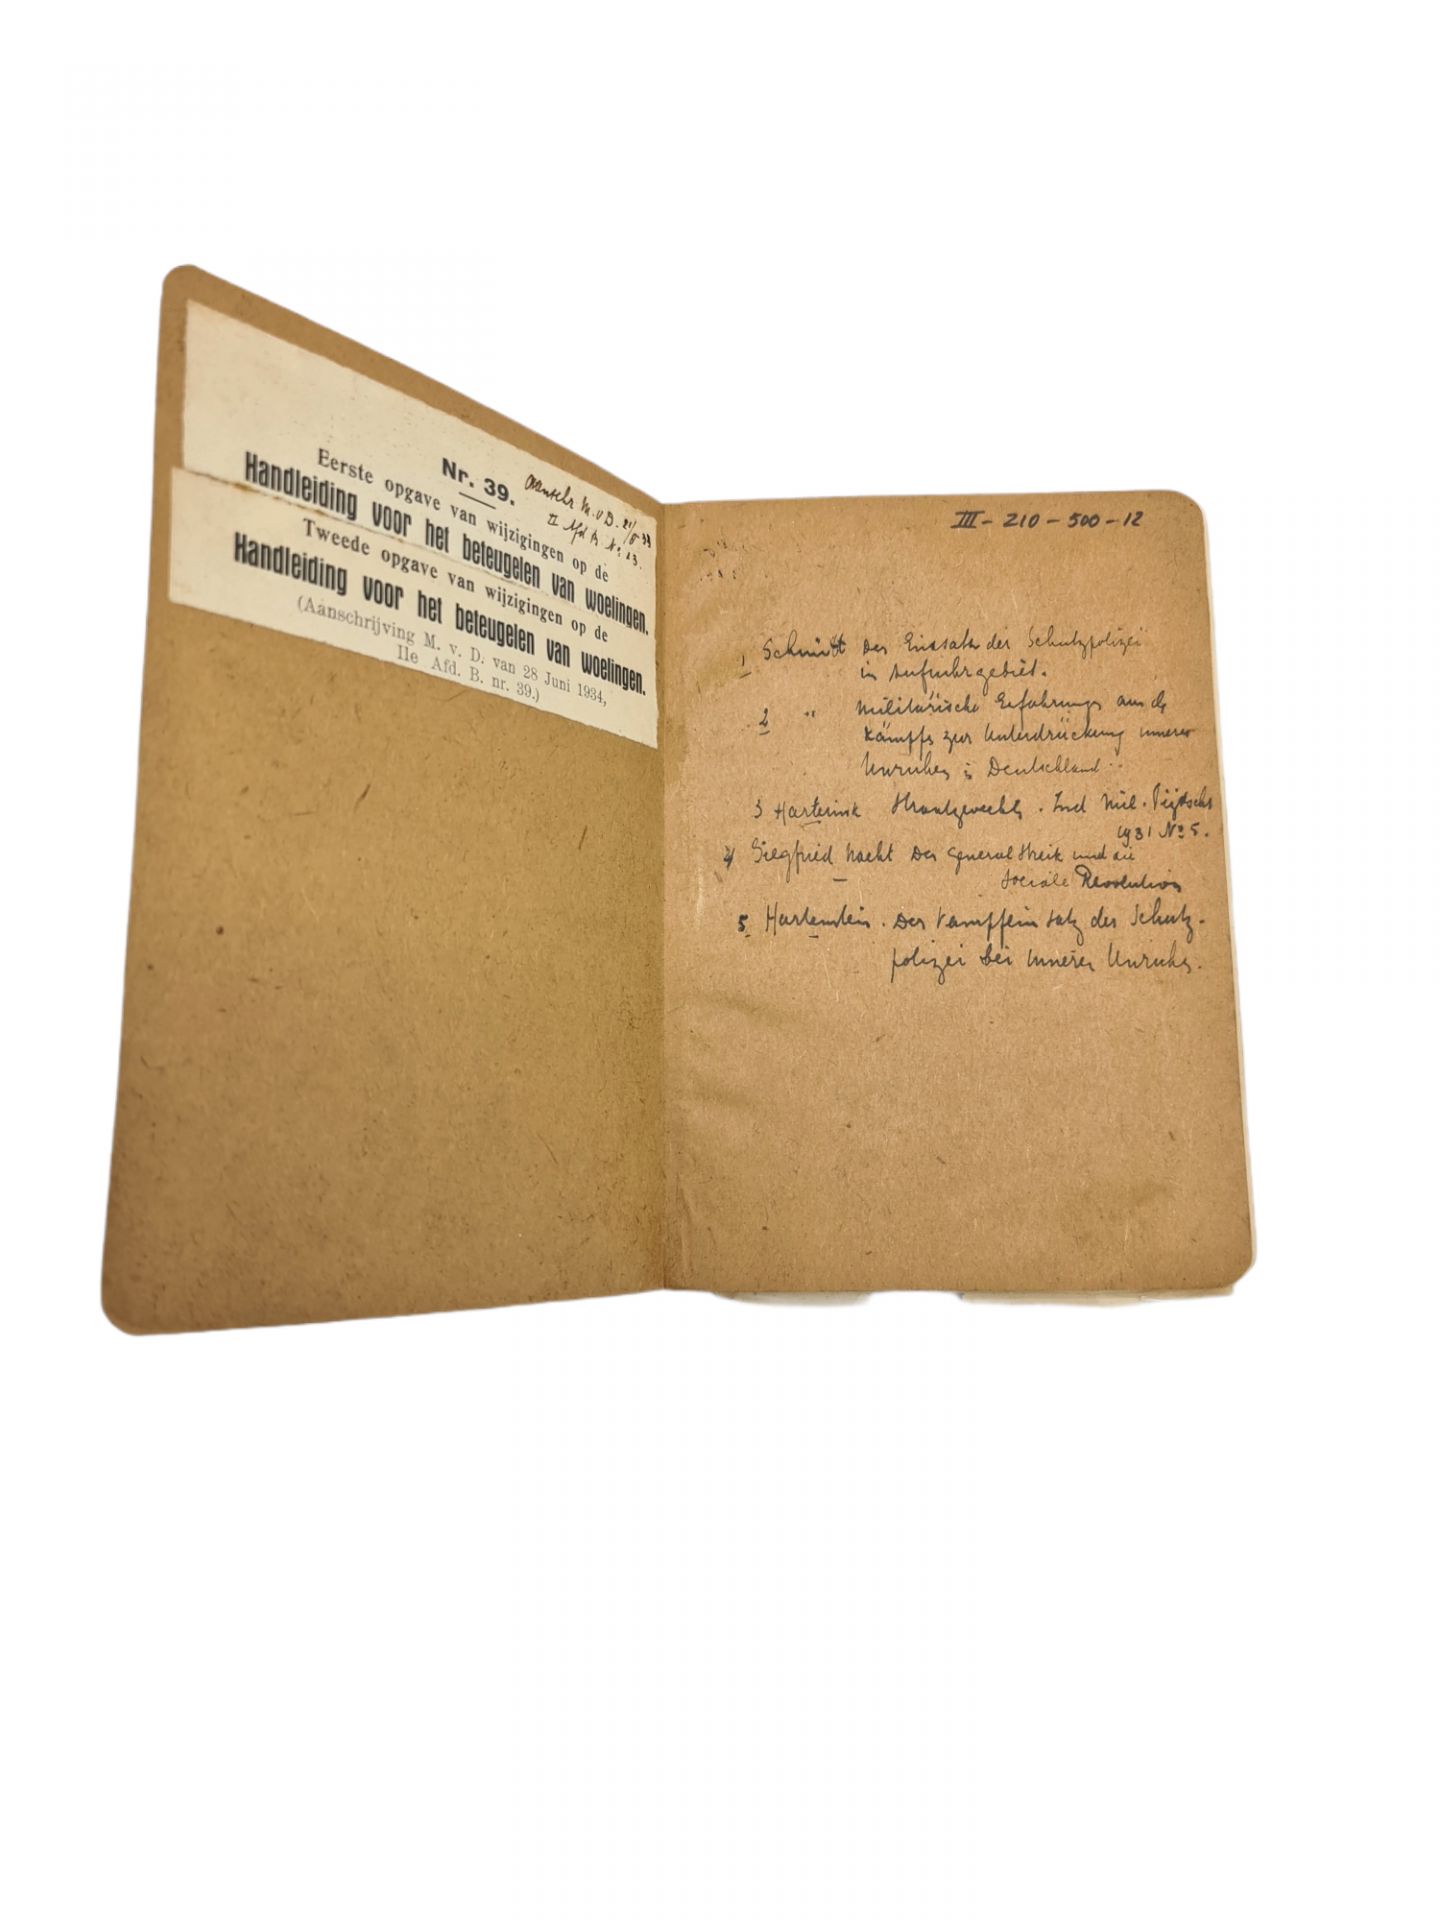 Nr. 39.
Aanschr M. v D. 21/8 33
II Afd B No 23.
Eerste opgave van wijzigingen op de
Handleiding voor het beteugelen van woelingen.
Tweede opgave van wijzigingen op de
Handleiding voor het beteugelen van woelingen.
(Aanschrijving M. v. D. van 28 Juni 1934,
IIe Afd. B. nr. 39.)
III - 210 - 500 - 12
1 Schmitt Der Einsatz der Schutzpolizei
in Aufruhrgebiet.
2 " Militärische Erfahrungen aus den
Kämpfe zur Unterdrückung innerer
Unruhen in Deutschland
3 Harterink Straatgevechten. Ind Mil. Tijdschr
1931 No 5.
4 Siegfried Nacht Der Generalstreik und die
sociale Revolution
5 Hartenstein. Der Kampfeinsatz der Schutz-
polizei bei innerer Unruhen.